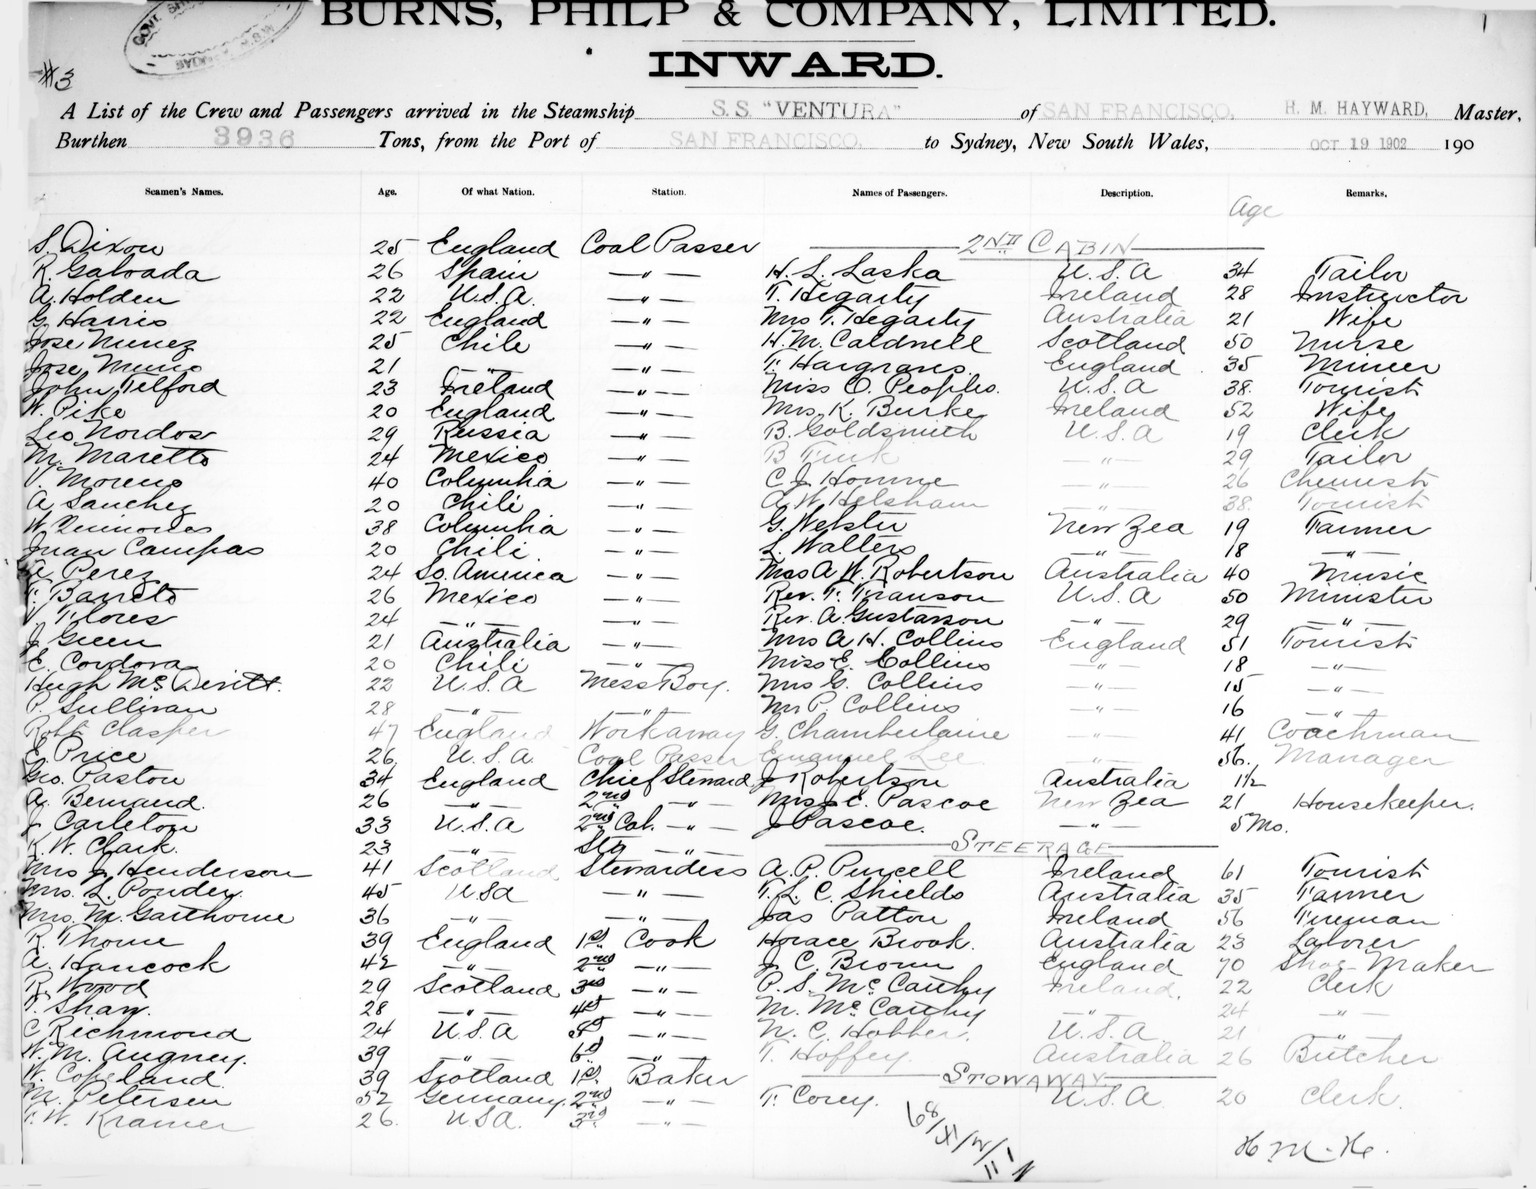 BURNS, PHILP & COMPANY, LIMITED.
INWARD.
#3
A List of the Crew and Passengers arrived in the Steamship S.S. "VENTURA" of SAN FRANCISCO, H. M. HAYWARD, Master,
Burthen 3936 Tons, from the Port of SAN FRANCISCO, to Sydney, New South Wales, OCT 19 1902 190
Seamen's Names. Age. Of what Nation. Station. Names of Passengers. Description. Age Remarks.
S. Dixon 25 England Coal Passer 2ND CABIN
R. Galvada 26 Spain —"— H. L. Laska U.S.A 34 Tailor
A. Holden 22 U.S.A. —"— T. Hegarty Ireland 28 Instructor
G. Harris 22 England —"— Mrs T. Hegarty Australia 21 Wife
Jose Nunez 25 Chile —"— H. M. Caldwell Scotland 50 Nurse
Jose Muno 21 —"— —"— T. Hargraves England 35 Miner
John Telford 23 Ireland —"— Miss O. Peoples. U.S.A 38. Tourist
W. Pike 20 England —"— Mrs. K. Burke Ireland 52 Wife
Leo Nordos 29 Russia —"— B. Goldsmith U.S.A 19 Clerk
M. Maretto 24 Mexico —"— B Turk —"— 29 Tailor
V. Moreno 40 Columbia —"— C. J. Homme —"— 26 Chemist
A Sanchez 20 Chili —"— W. Helsham —"— 38. Tourist
W. 38 Columbia —"— G. Webster New Zea 19 Farmer
Juan Campas 20 Chili —"— L. Walters —"— 18 —"—
A Perez 24 So. America —"— Mrs A. W. Robertson Australia 40 Music
T. Barreto 26 Mexico —"— Rev. F. Franson U.S.A 50 Minister
V. Flores 24 —"— —"— Rev. A. Gustavson —"— 29 —"—
J Green 21 Australia —"— Mrs A. H. Collins England 51 Tourist
E. Cordova 20 Chili —"— Miss E. Collins —"— 18 —"—
Hugh McDevitt. 22 U.S.A Mess Boy. Mrs G. Collins —"— 15 —"—
P. Sullivan 28 —"— —"— Mr P. Collins —"— 16 —"—
Robt Clasper 47 England Workaway G. Chamberlaine —"— 41 Coachman
E Price 26 U.S.A. Coal Passer Emanuel Lee —"— 56. Manager
Geo. Paston 34 England Chief Steward J Robertson Australia 1½
A. Bernand. 26 —"— 2nd —"— Mrs E. Pascoe New Zea 21 Housekeeper.
J Carleton 33 U.S.A 2nd Cab. —"— J Pascoe. —"— 5 Mo.
K. W. Clark. 23 —"— Stg —"— STEERAGE
Mrs J. Henderson 41 Scotland Stewardess A. P. Purcell Ireland 61 Tourist
Mrs. L. Pondey. 45 USA —"— T. L. C. Shields Australia 35 Farmer
Mrs. M. Garthorne 36 —"— —"— Jas Patton Ireland 56 Fireman
R. Thorne 39 England 1st Cook Horace Brook. Australia 23 Laborer
A. Hancock 42 —"— 2nd —"— J. C. Brown England 70 Shoe-Maker
R. Wood 29 Scotland 3rd —"— P. S. McCarthy Ireland. 22 Clerk
T. Shaw. 28 —"— 4th —"— M. McCarthy —"— 24 —"—
C Richmond 24 U.S.A 5th —"— N. C. Hobber. U.S.A 21 —"—
W. M. Augney. 39 —"— 6th —"— T. Hoffey. Australia 26 Butcher
W. Copeland 39 Scotland 1st. Baker STOWAWAY
M. Petersen 52 Germany. 2nd —"— T. Corey. U.S.A. 20 Clerk.
F. W. Kramer 26. USA. 3rd —"—
H. M. H.